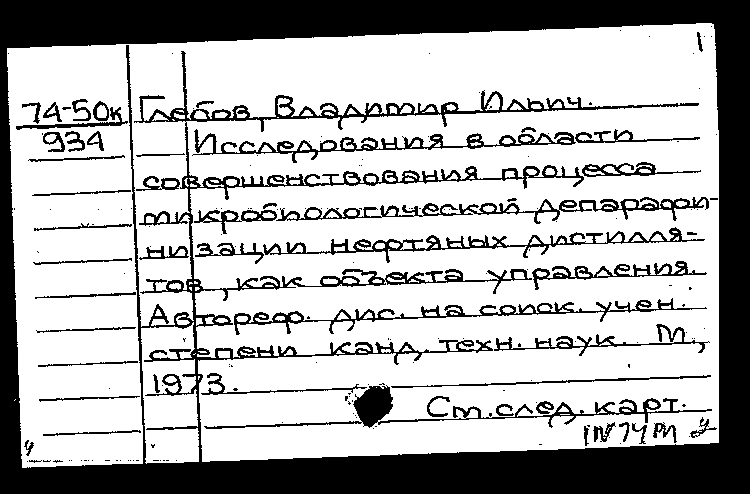 1
74-50к Глебов, Владимир Ильич.
934 Исследования в области
совершенствования процесса
микробиологической депарафи-
низации нефтяных дистилля-
тов, как объекта управления.
Автореф. дис. на соиск. учен.
степени канд. техн. наук. М.,
1973.
См. след. карт.